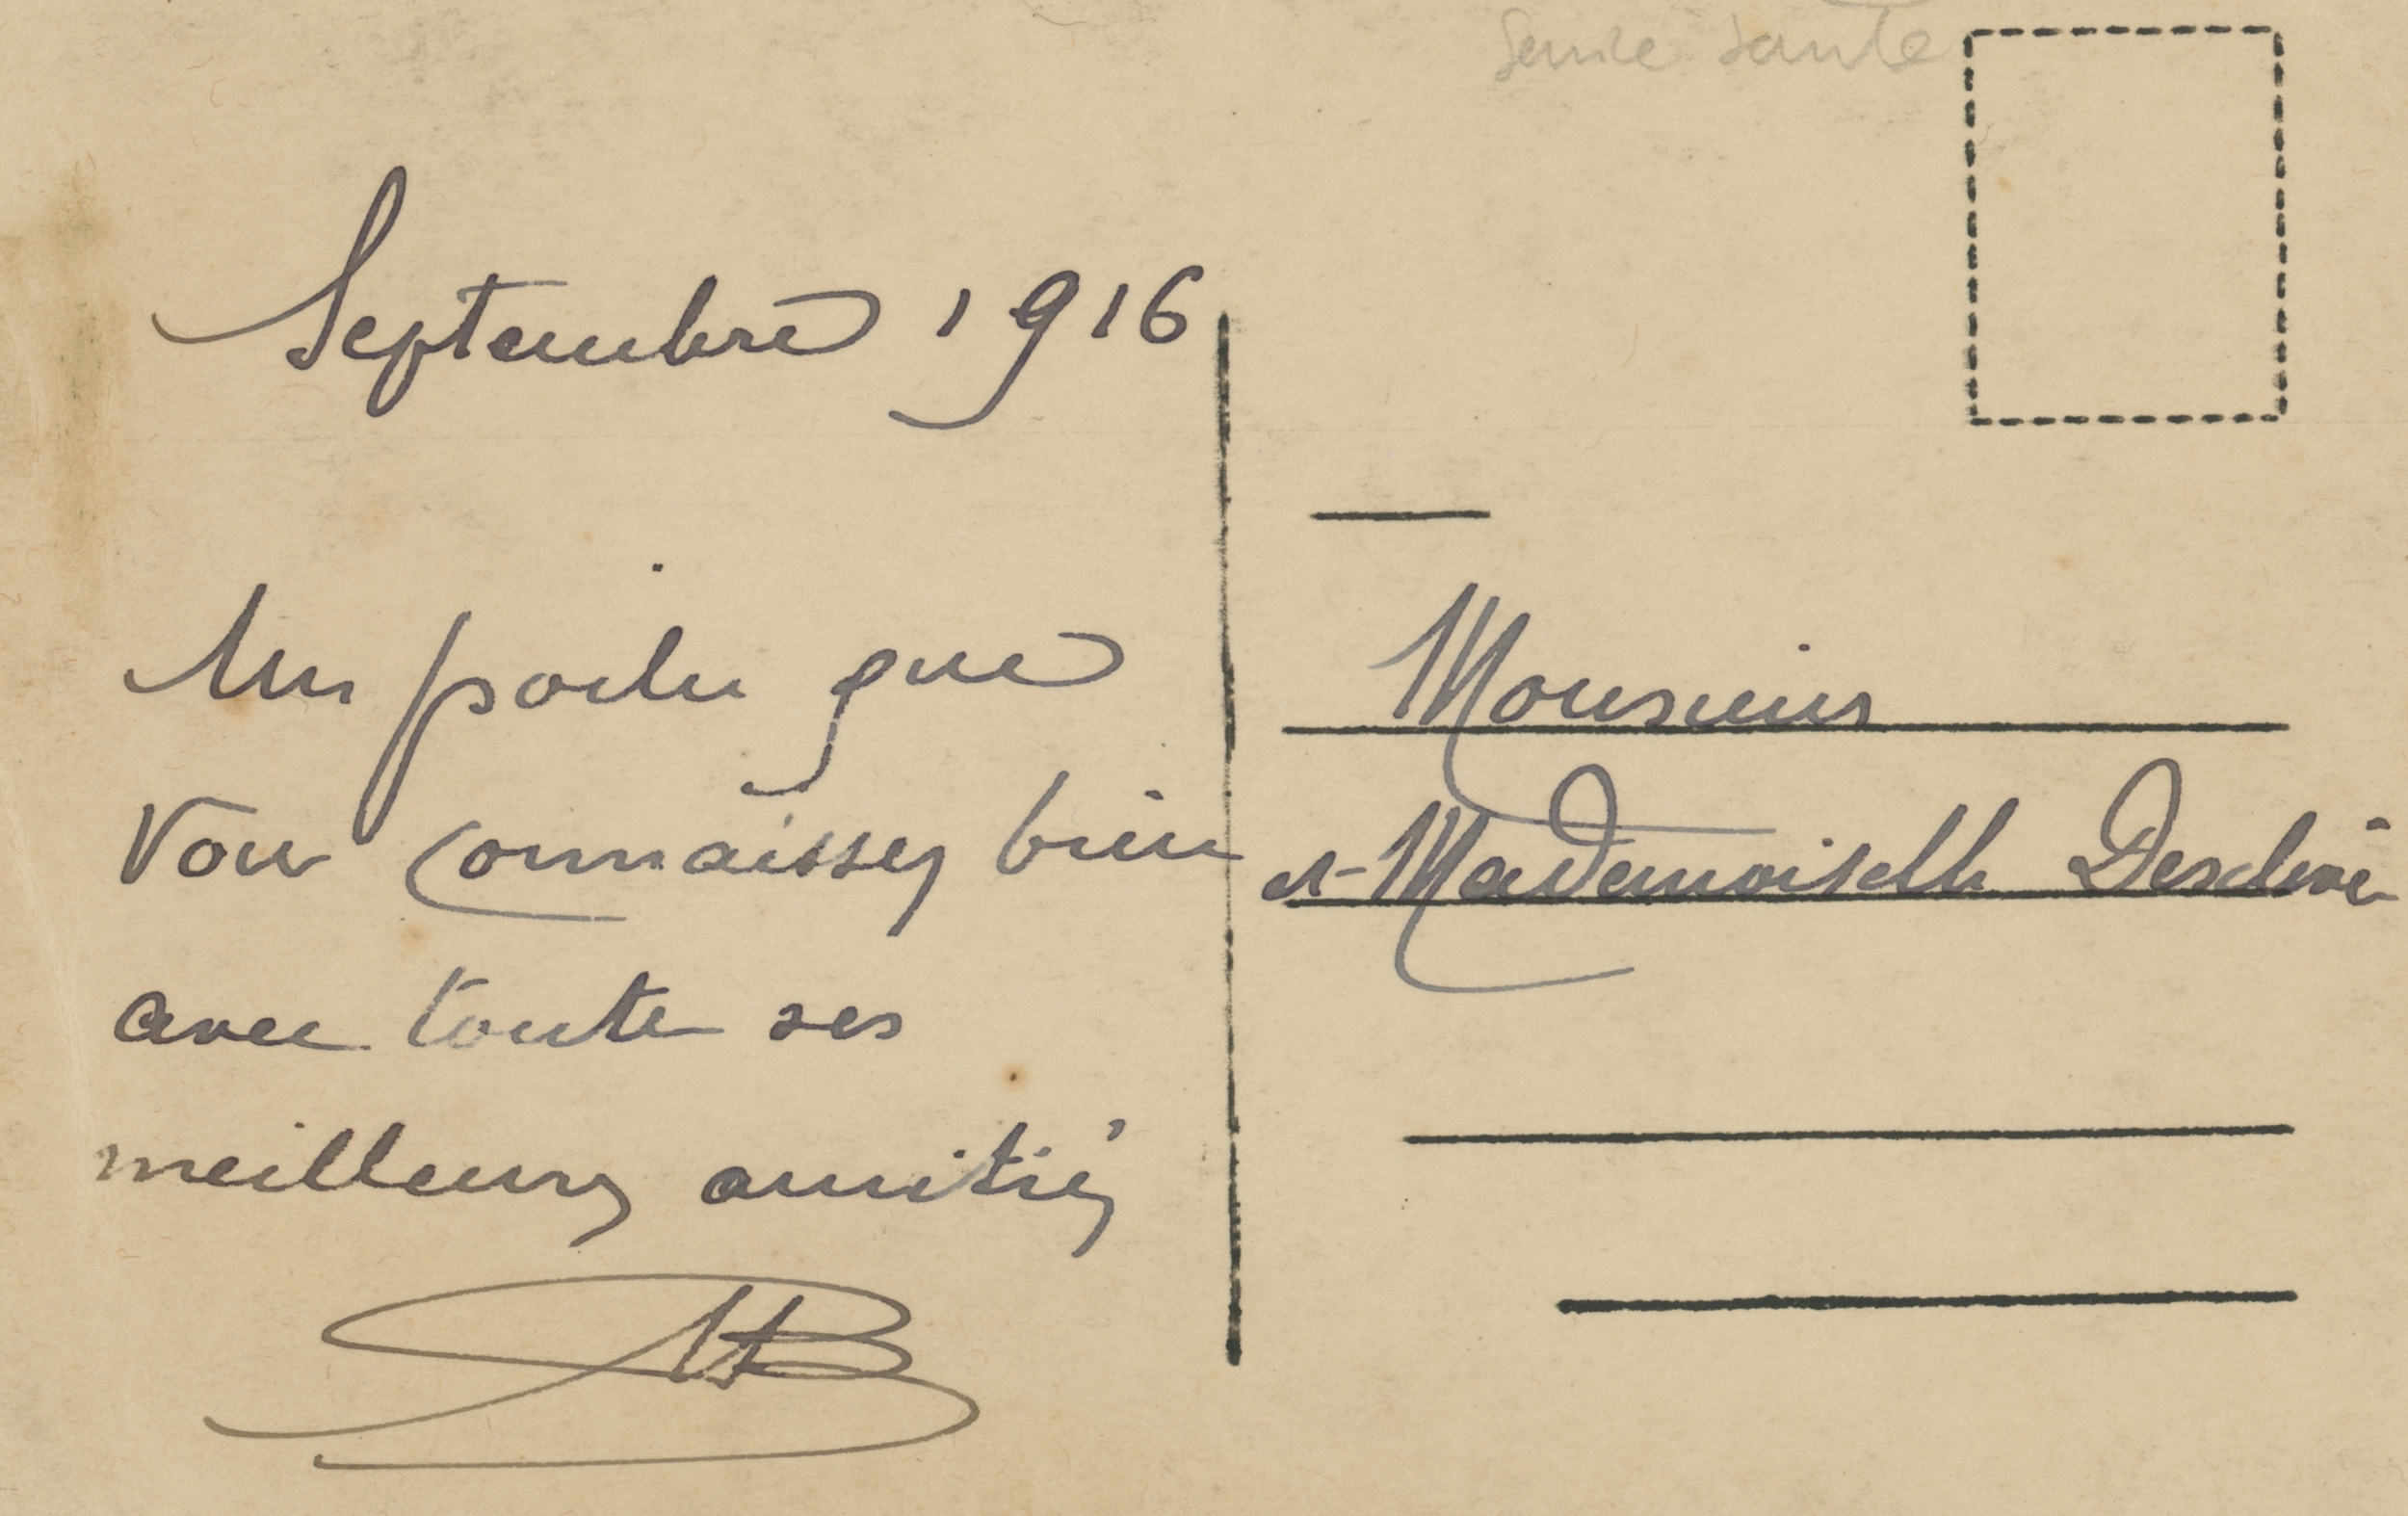 Service Santé
Septembre 1916
Un poilu que
Vous connaissez bien
avec toute ses
meilleurs amitiés
Monsieur
et Mademoiselle